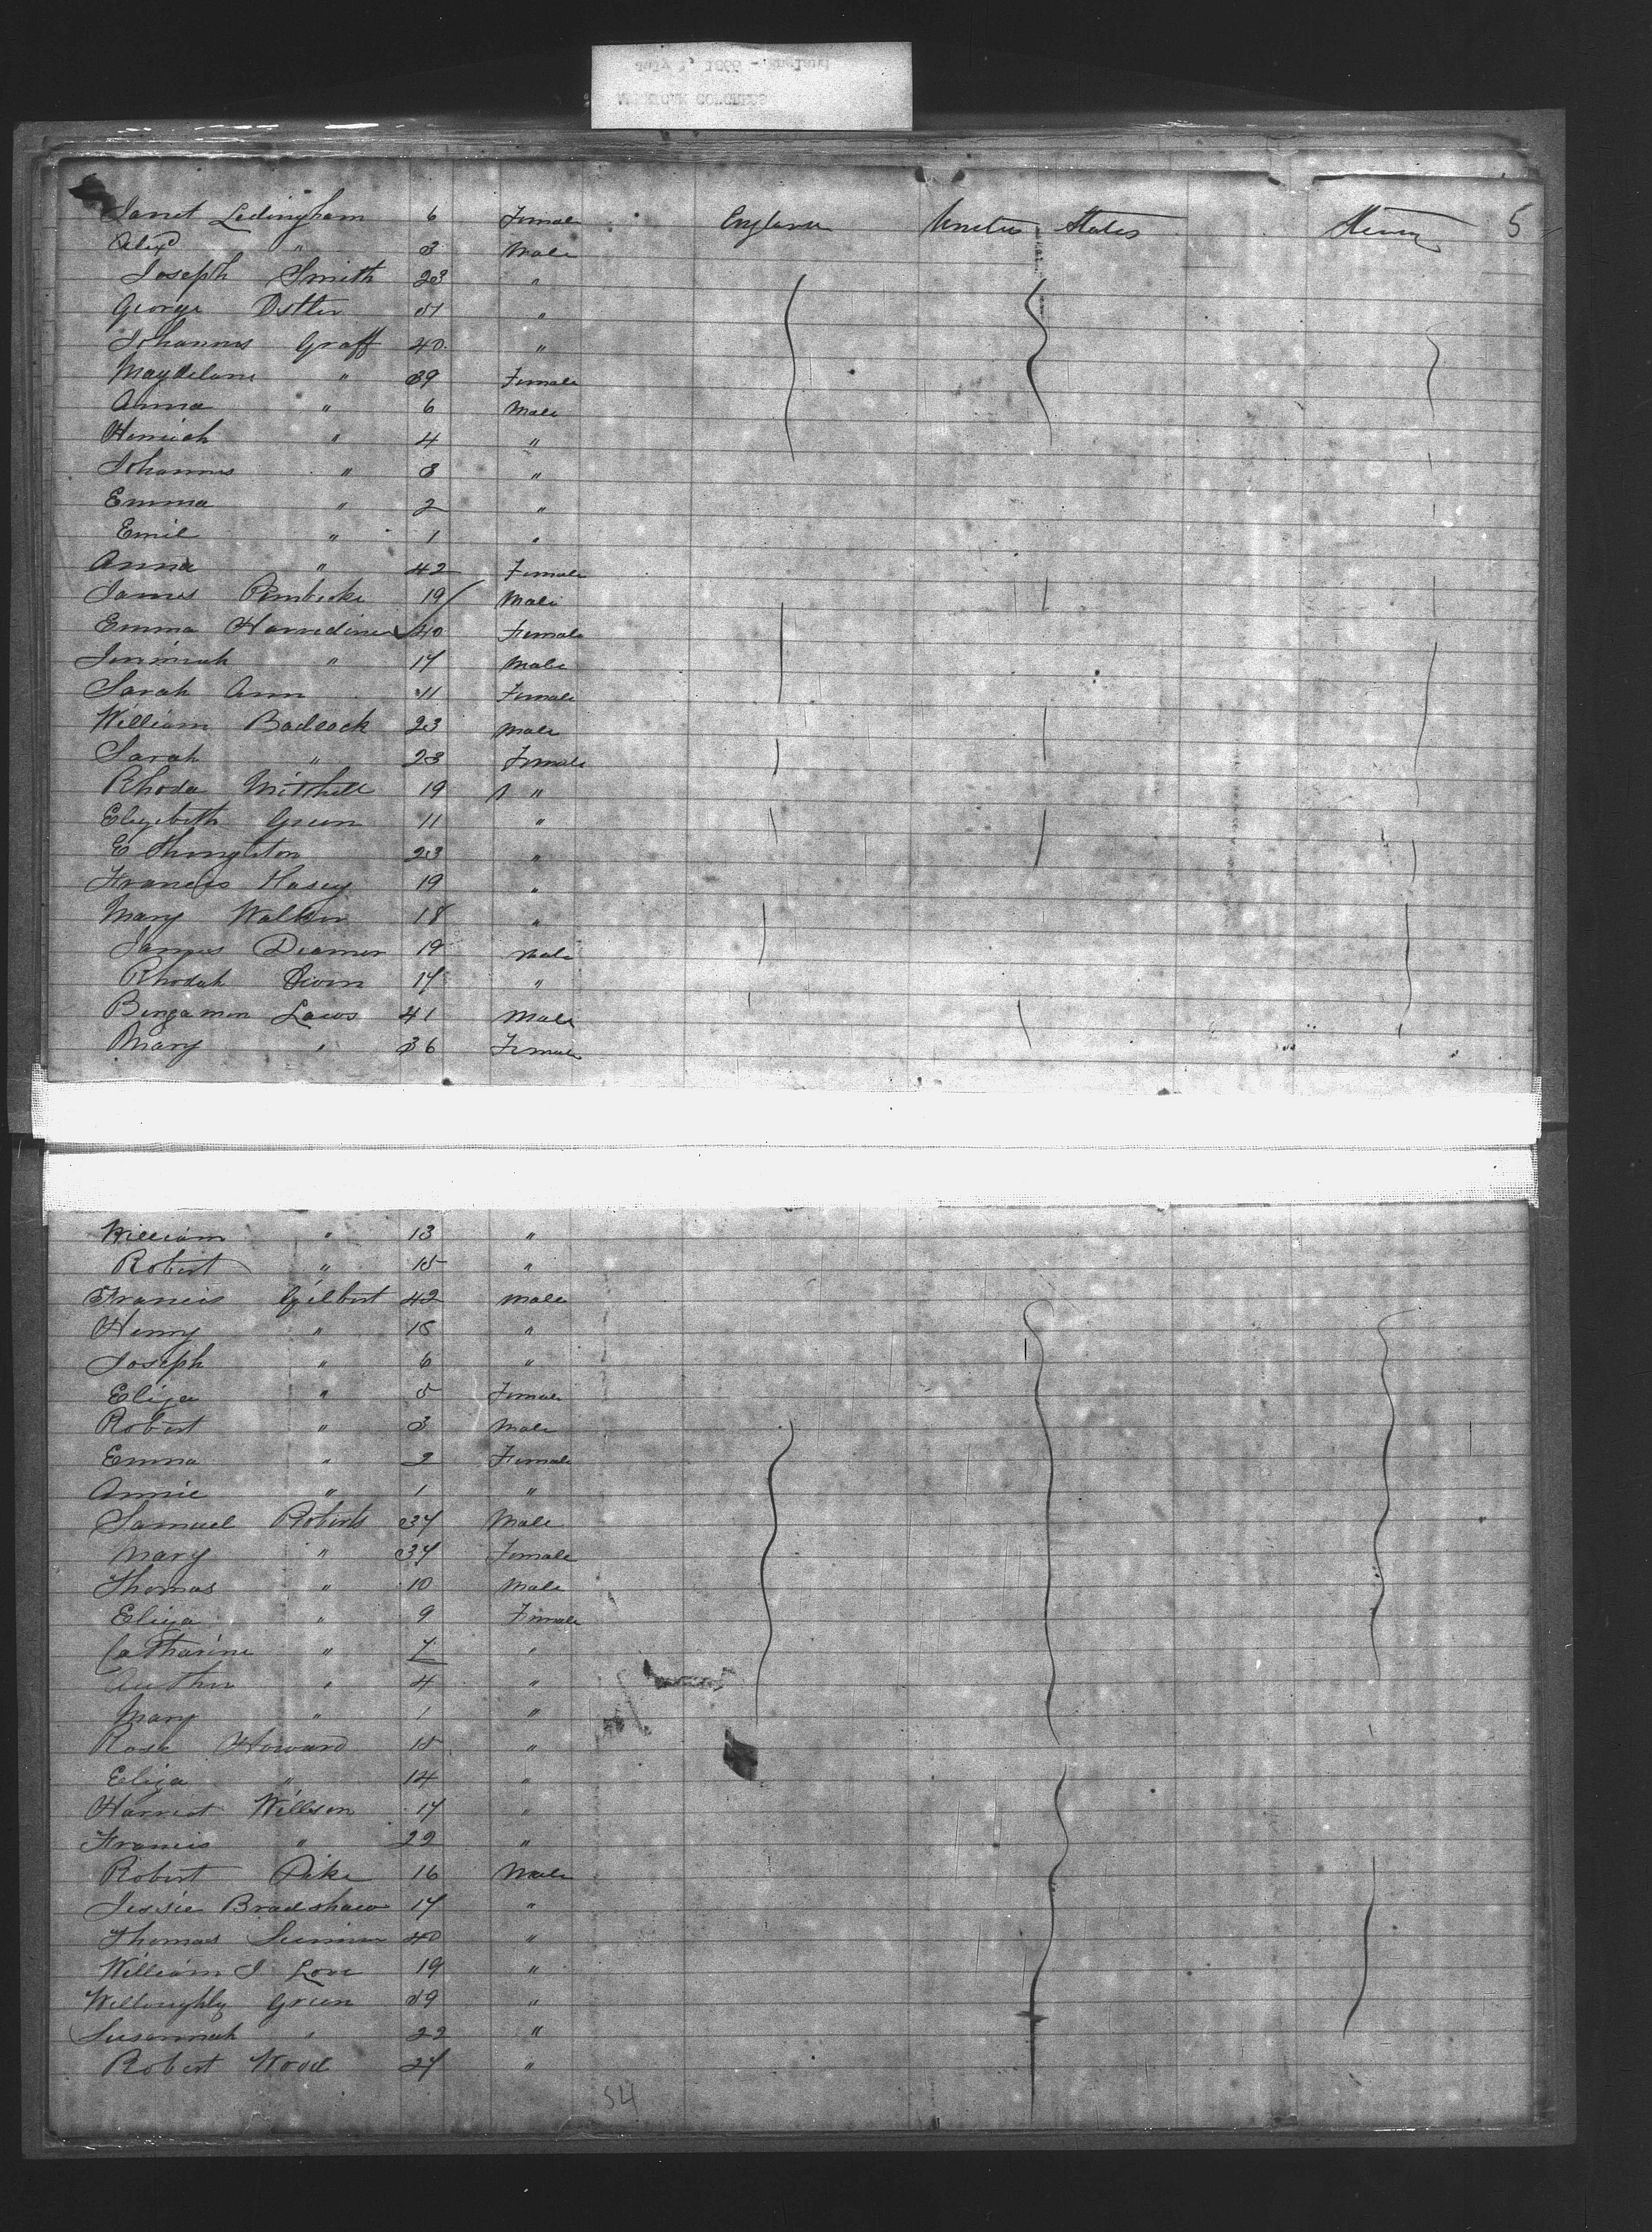 5
Janet Ledingham 6 Female England United States
Alex " 3 Male
Joseph Smith 23 "
George 
Johannes Graff 40 "
Magdelane " 39 Female
Anna " 6 Male
Henrich " 4 "
Johannes " 3 "
Emma " 2 "
Emil " 1 "
Anna " 42 Female
James Pembroke 19 Male
Emma 40 Female
Jerimiah " 17 Male
Sarah Ann 11 Female
William Badcock 23 Male
Sarah " 23 Female
Rhoda Mitchell 19 "
Elizebeth Green 11 "
E 23 "
Francis 19 "
Mary Walker 18 "
James 19 Male
Rhodah 17 "
Bengamon Laws 41 Male
Mary " 36 Female
William " 13 "
Robert " 15 "
Francis Gilbert 42 Male
Henry " 18 "
Joseph " 6 "
Eliza " 5 Female
Robert " 3 Male
Emma " 2 Female
Annie " 1 "
Samuel Roberts 37 Male
Mary " 37 Female
Thomas " 10 Male
Eliza " 9 Female
Catharine " 7 "
Author " 4 "
Mary " 1 "
Rose Howard 15 "
Eliza " 14 "
Harriet Willson 17 "
Francis " 22 "
Robert Pike 16 Male
Jessie Bradshaw 17 "
Thomas 40 "
William J Love 19 "
Willoughby Green 39 "
Susannah " 22 "
Robert Wood 27 "
54